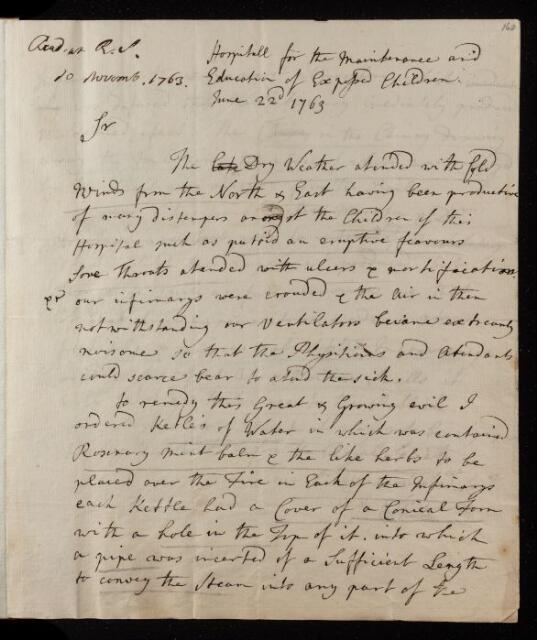 160
Read at R.S.
10 Novemb. 1763.
Hospitall for the Maintenance and
Education of Exposed Children.
June 22d 1763
Sr
The late Dry Weather atended with Cold
Winds from the North & East having been productive
of many distempers amongst the Children of this
Hospital such as putrid an eruptive feavours
sore Throats atended with ulcers & mortification
our infirmarys were crouded & the Air in them
notwithstanding our Ventilators became extreamly
noisome so that the Physitians and Atendants
could scarce bear to atend the sick.
to remedy this Great & Growing evil I
ordered Ketles of Water in which was contained
Rosemary mint balm & the like herbs to be
placed over the Fire in Each of the Infirmarys
each Kettle had a Cover of a Conical Form
with a hole in the Top of it, into which
a pipe was inserted of a Sufficient Length
to convey the Steam into any part of the